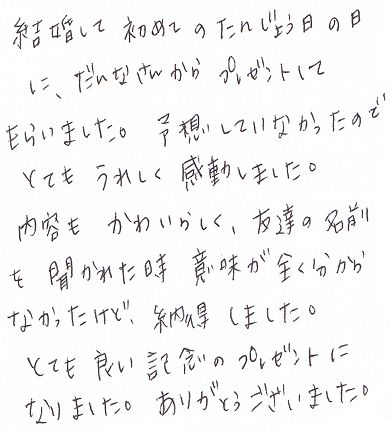 結婚して 初めての たんじょう日の日
に、だんなさんから プレゼントして
もらいました。予想していなかったので
とても うれしく 感動しました。
内容も かわいらしく、友達の名前
を 聞かれた時 意味が 全く分から
なかったけど、納得しました。
とても 良い 記念の プレゼントに
なりました。ありがとうございました。